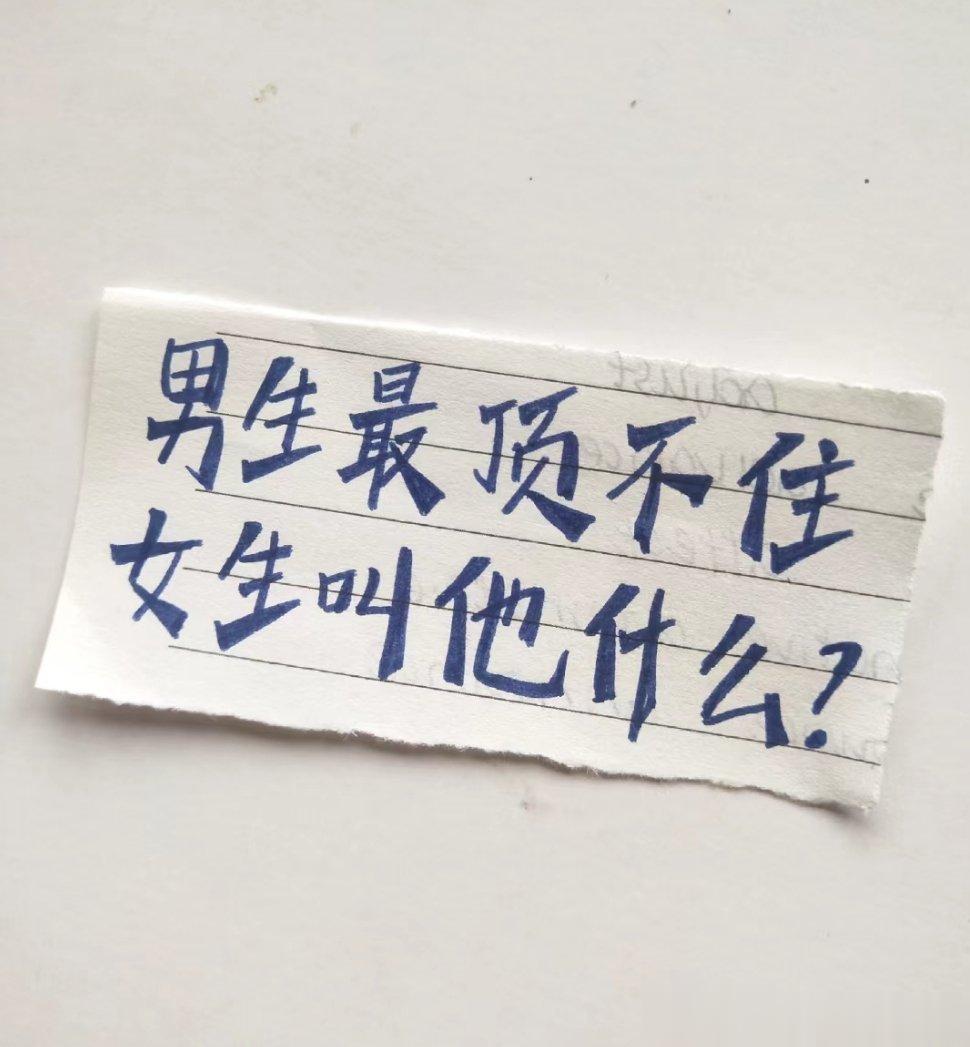 男生最顶不住
女生叫他什么?